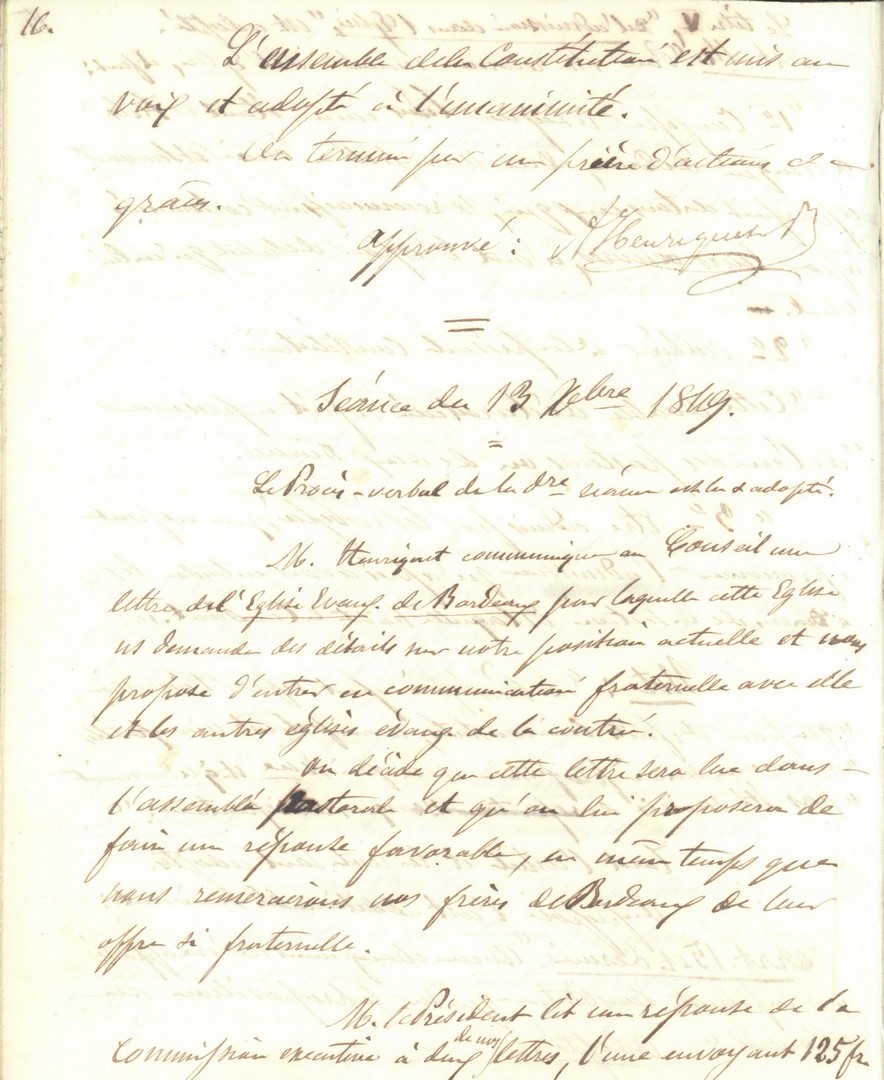 16.
L'ensemble de la Constitution est mis aux
voix et adopté à l'unanimité.
On termine par une prière d'actions de
grâces.
Approuvé : Henriquet
Séance du 13 Xbre 1849.
Le Procès-verbal de la dre séance est lu & adopté.
M. Henriquet communique au Conseil une
lettre de l'Eglise Evang. de Bordeaux par laquelle cette Eglise
ns demande des détails sur notre position actuelle et nous
propose d'entrer en communication fraternelle avec elle
et les autres églises évang. de la contrée.
On décide que cette lettre sera lue dans
l'assemblée pastorale et qu'on lui proposera de
faire une réponse favorable, en même temps que
nous remercierons nos frères de Bordeaux de leur
offre si fraternelle.
M. le Président lit une réponse de la
Commission executive à deux de nos lettres, l'une envoyant 125 fr.